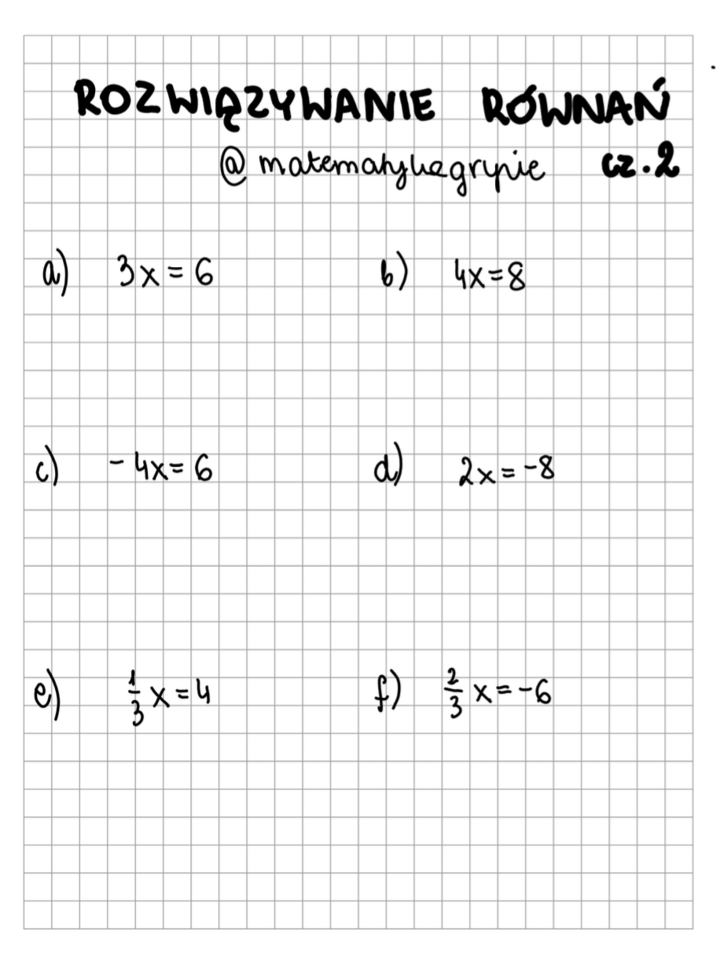 ROZWIĄZYWANIE RÓWNAŃ
@matematykagryzie cz.2
a) 3x = 6
b) 4x=8
c) -4x= 6
d) 2x = -8
e) 1/3 x = 4
f) 2/3 x = -6